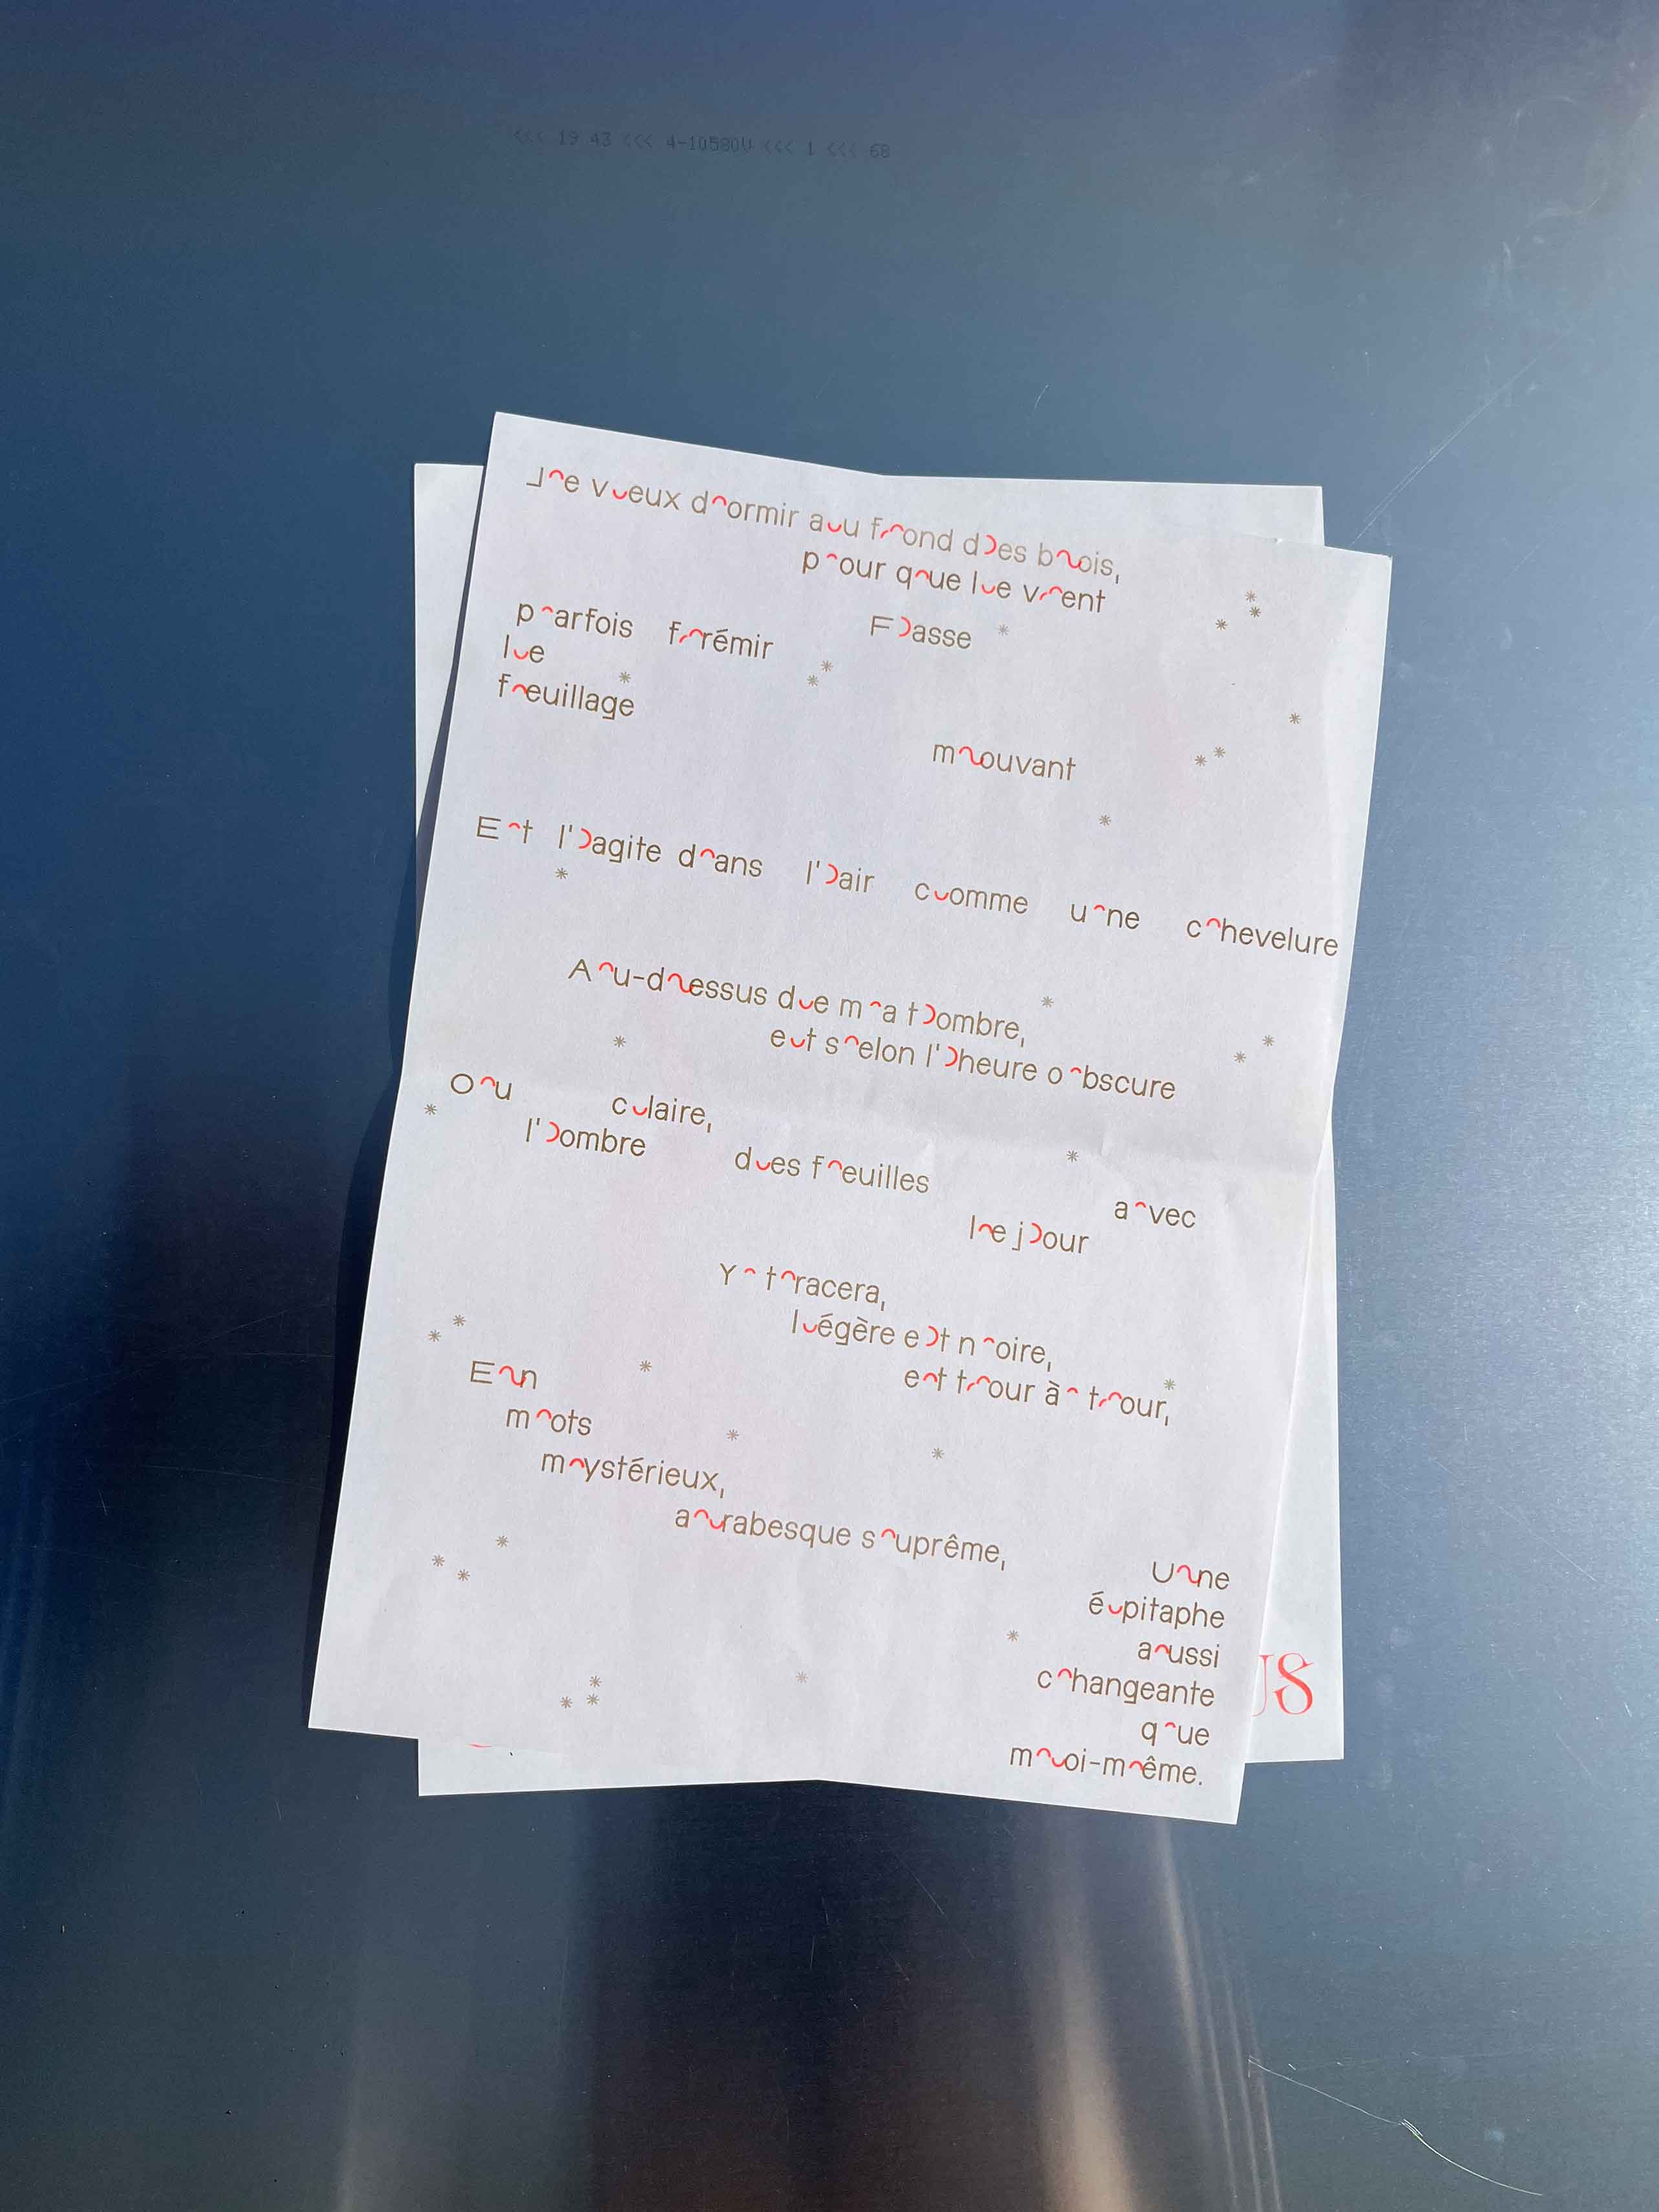 <<< 19 43 <<< 4-10580V <<< 1 <<< 68
Je veux dormir au fond des bois,
pour que le vent
Fasse
parfois frémir
le
feuillage
mouvant
Et l'agite dans l'air comme une chevelure
Au-dessus de ma tombre,
et selon l'heure obscure
Ou claire,
l'ombre
des feuilles
avec
le jour
Y tracera,
légère et noire,
et tour à tour,
En
mots
mystérieux,
arabesque suprême,
Une
épitaphe
aussi
changeante
que
moi-même.
US